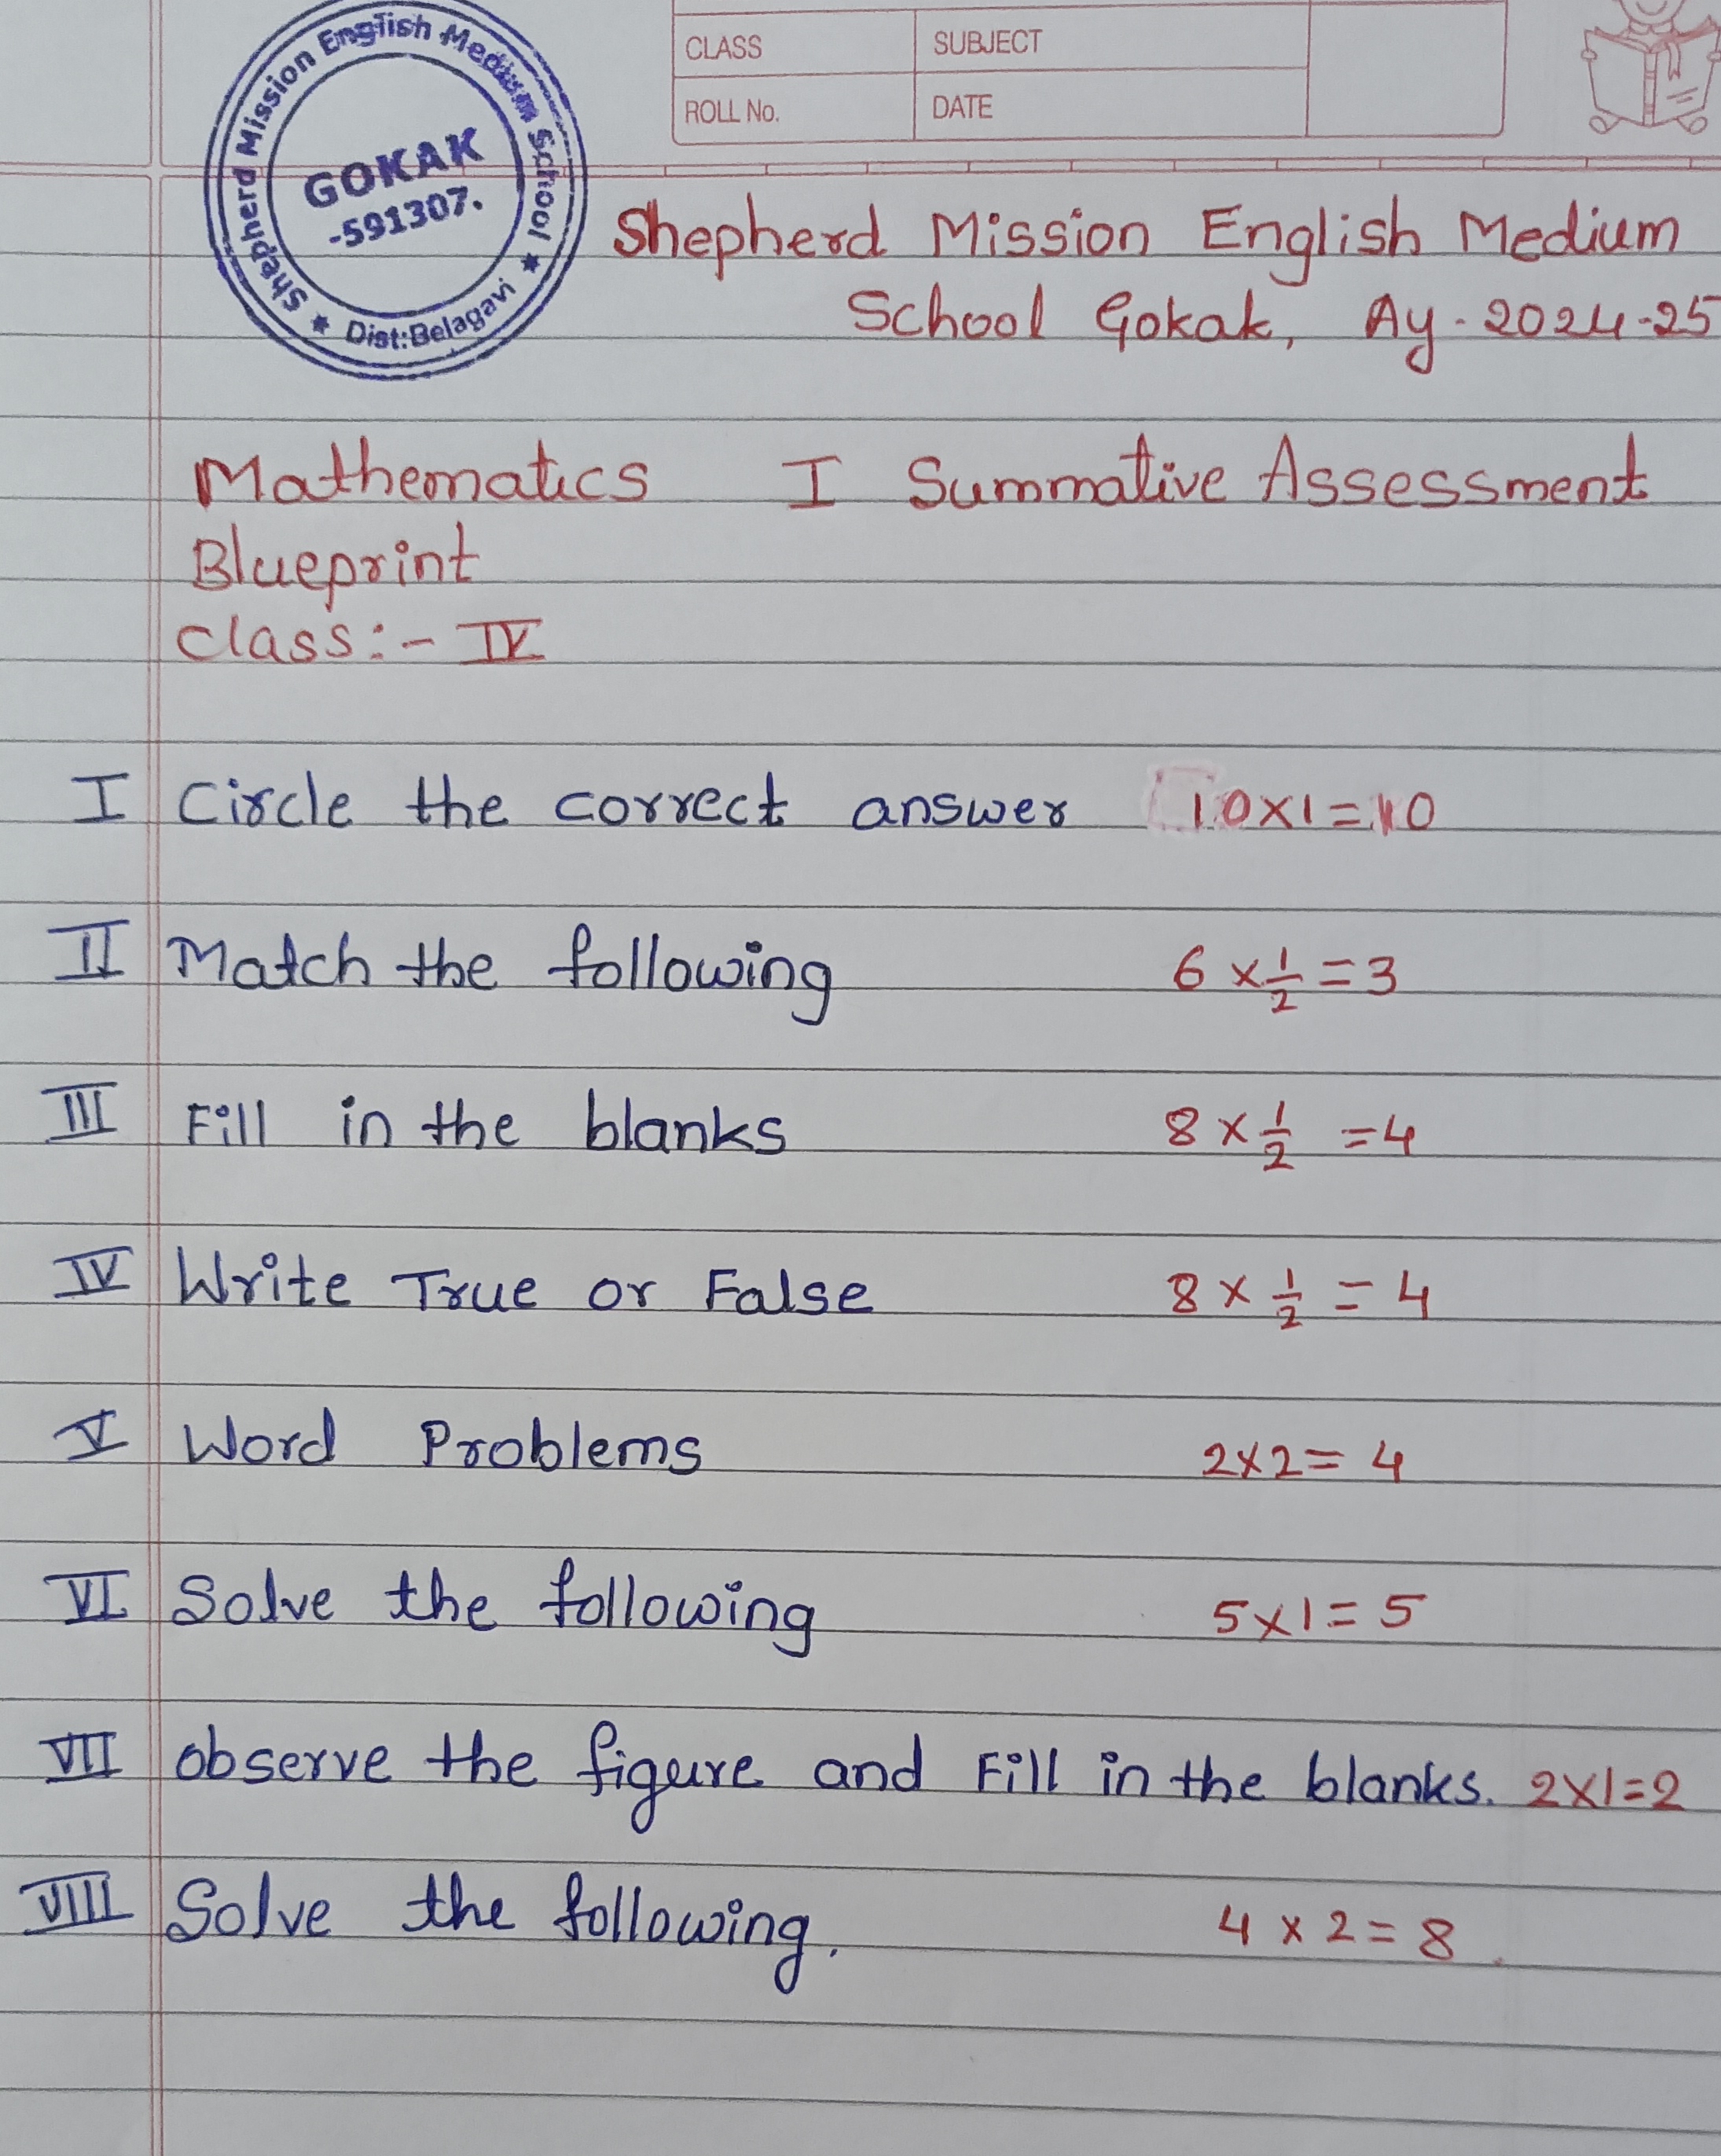 Shepherd Mission English Medium School
Dist:Belagavi
GOKAK
-591307.
CLASS SUBJECT
ROLL No. DATE
Shepherd Mission English Medium
School Gokak, Ay-2024-25
Mathematics I Summative Assessment
Blueprint
Class:- IV
I Circle the correct answer 10x1=10
II Match the following 6 x 1/2 = 3
III Fill in the blanks 8 x 1/2 = 4
IV Write True or False 8 x 1/2 = 4
V Word Problems 2x2= 4
VI Solve the following 5x1= 5
VII observe the figure and Fill in the blanks. 2x1=2
VIII Solve the following. 4 x 2 = 8